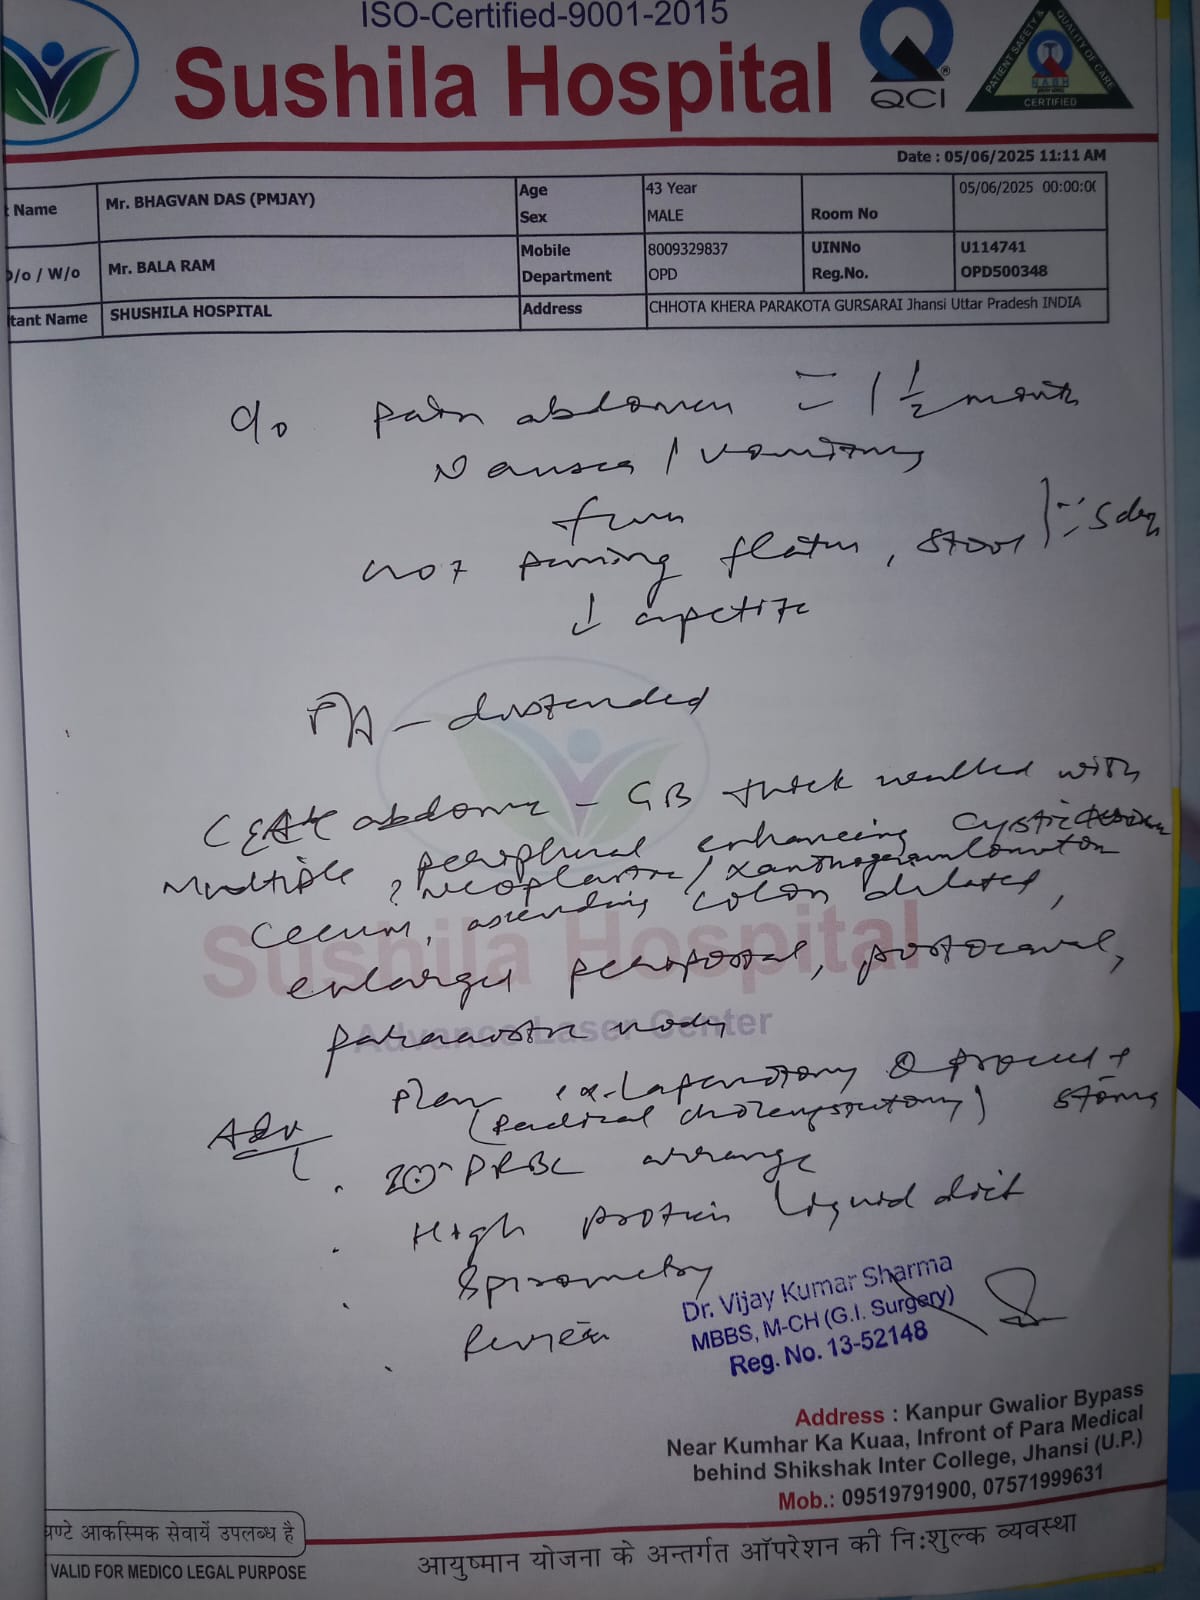 ISO-Certified-9001-2015
Sushila Hospital
QCI
PATIENT SAFETY & QUALITY OF CARE
NABH
CERTIFIED
Date : 05/06/2025 11:11 AM
Name Mr. BHAGVAN DAS (PMJAY) Age 43 Year 05/06/2025 00:00:00
Sex MALE Room No
D/o / W/o Mr. BALA RAM Mobile 8009329837 UINNo U114741
Department OPD Reg.No. OPD500348
tant Name SHUSHILA HOSPITAL Address CHHOTA KHERA PARAKOTA GURSARAI Jhansi Uttar Pradesh INDIA
c/o Pain abdomen 1 1/2 month
Nausea / vomiting
fever
not passing flatus, stool } 5 day
↓ apetite
P/A - distended
CECT abdomen - GB thick walled with
Multiple peripheral enhancing cystic
? neoplastic / xanthogranulomaton
Cecum, ascending colon dilated,
enlarged periportal, portocaval,
paraaortic nody
Plan ex. Laparotomy & proceed +
(Radical cholecystectomy) stoma
Adv
PRBC arrange
High protein liquid diet
Spirometry
Review
Sushila Hospital
Advance Laser Center
Dr. Vijay Kumar Sharma
MBBS, M-CH (G.I. Surgery)
Reg. No. 13-52148
Address : Kanpur Gwalior Bypass
Near Kumhar Ka Kuaa, Infront of Para Medical
behind Shikshak Inter College, Jhansi (U.P.)
Mob.: 09519791900, 07571999631
घण्टे आकस्मिक सेवायें उपलब्ध है
VALID FOR MEDICO LEGAL PURPOSE
आयुष्मान योजना के अन्तर्गत ऑपरेशन की निःशुल्क व्यवस्था